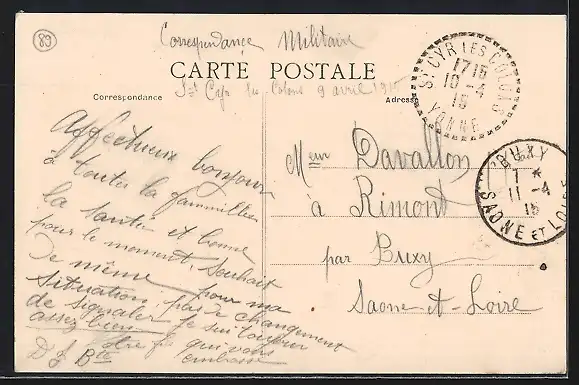 89
Correspondance Militaire
CARTE POSTALE
St Cyr les Colons 9 avril 1915
Correspondance
Adresse
Affectueux bonjour
à toutes la famille
la santé est bonne
pour le moment, souhait
De même pour ma
situation, pas de changement
de signaler Je suis toujour
assez bien
votre fils qui vous
embrasse
D J Bte
Meur Davallon
à Rimont
par Buxy
Saone-et-Loire
ST CYR LES COLONS
1715
10-4
15
YONNE
BUXY
7 *
11-4
15
SAONE ET LOIRE